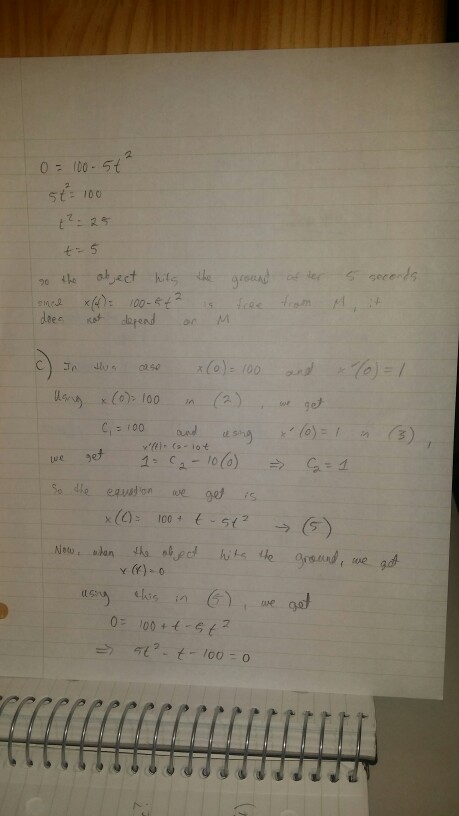 0 = 100 - 5t²
5t² = 100
t² = 25
t = 5
so the object hits the ground after 5 seconds
since x(t) = 100 - 5t² is free from M, it
does not depend on M
c) In this case x(0) = 100 and x'(0) = 1
Using x(0) = 100 in (2), we get
C₁ = 100 and using x'(0) = 1 in (3),
x'(t) = C₂ - 10t
we get 1 = C₂ - 10(0) ⇒ C₂ = 1
So the equation we get is
x(t) = 100 + t - 5t² → (5)
Now, when the object hits the ground, we get
x(t) = 0
using this in (5), we get
0 = 100 + t - 5t²
⇒ 5t² - t - 100 = 0